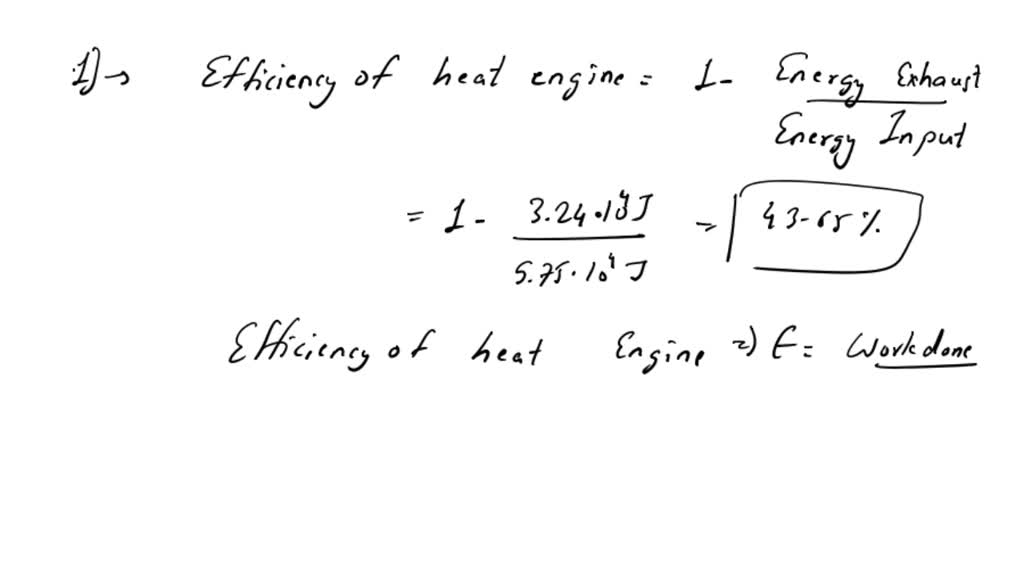 1)→ Efficiency of heat engine = 1- Energy Exhaust
Energy Input
= 1 - 3.24·10⁴J = 43.65 %
5.75·10⁴ J
Efficiency of heat Engine => E = Workdone